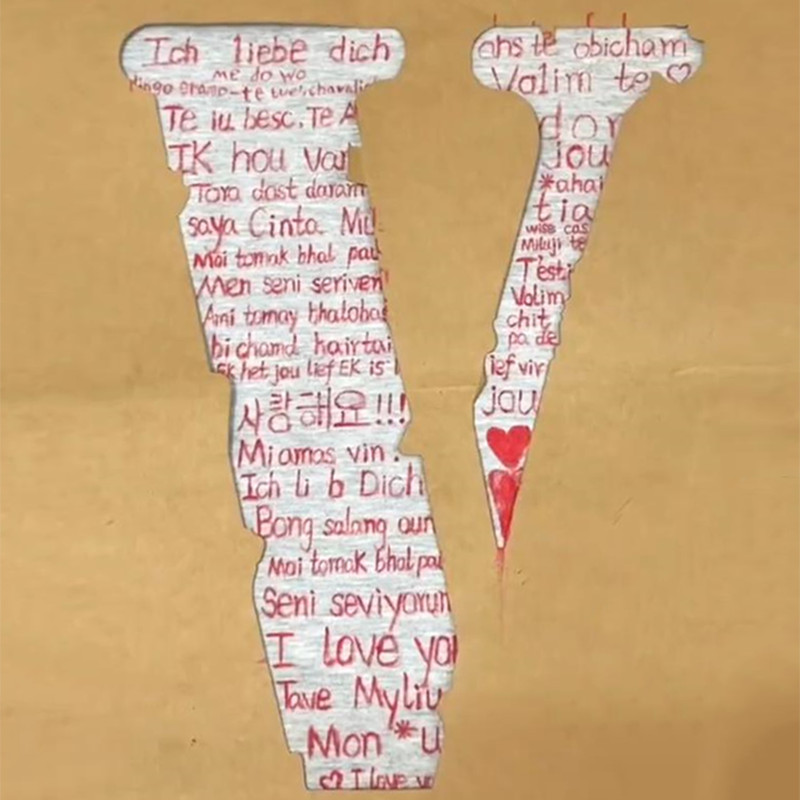 Ich liebe dich
me do wo
Te iu besc. Te A
IK hou var
Tora dast daram
saya Cinta Mu
Moi tomak bhal pau
Men seni seriven
Ami tomay bhaloba
bi chamd hairtai
Ek het jou lief EK is
사랑해요!!!
Mi amas vin.
Ich li b Dich
Bong salang oun
Moi tomak bhal pai
Seni seviyorum
I love yo
Tave Myliu
Mon *u
♡ I love y
ahs te obicham
Valim te ♡
dor
jou
*aha
tia
wiss cas
Miluji te
Testi
Volim
chit
pa de
ief vir
jou